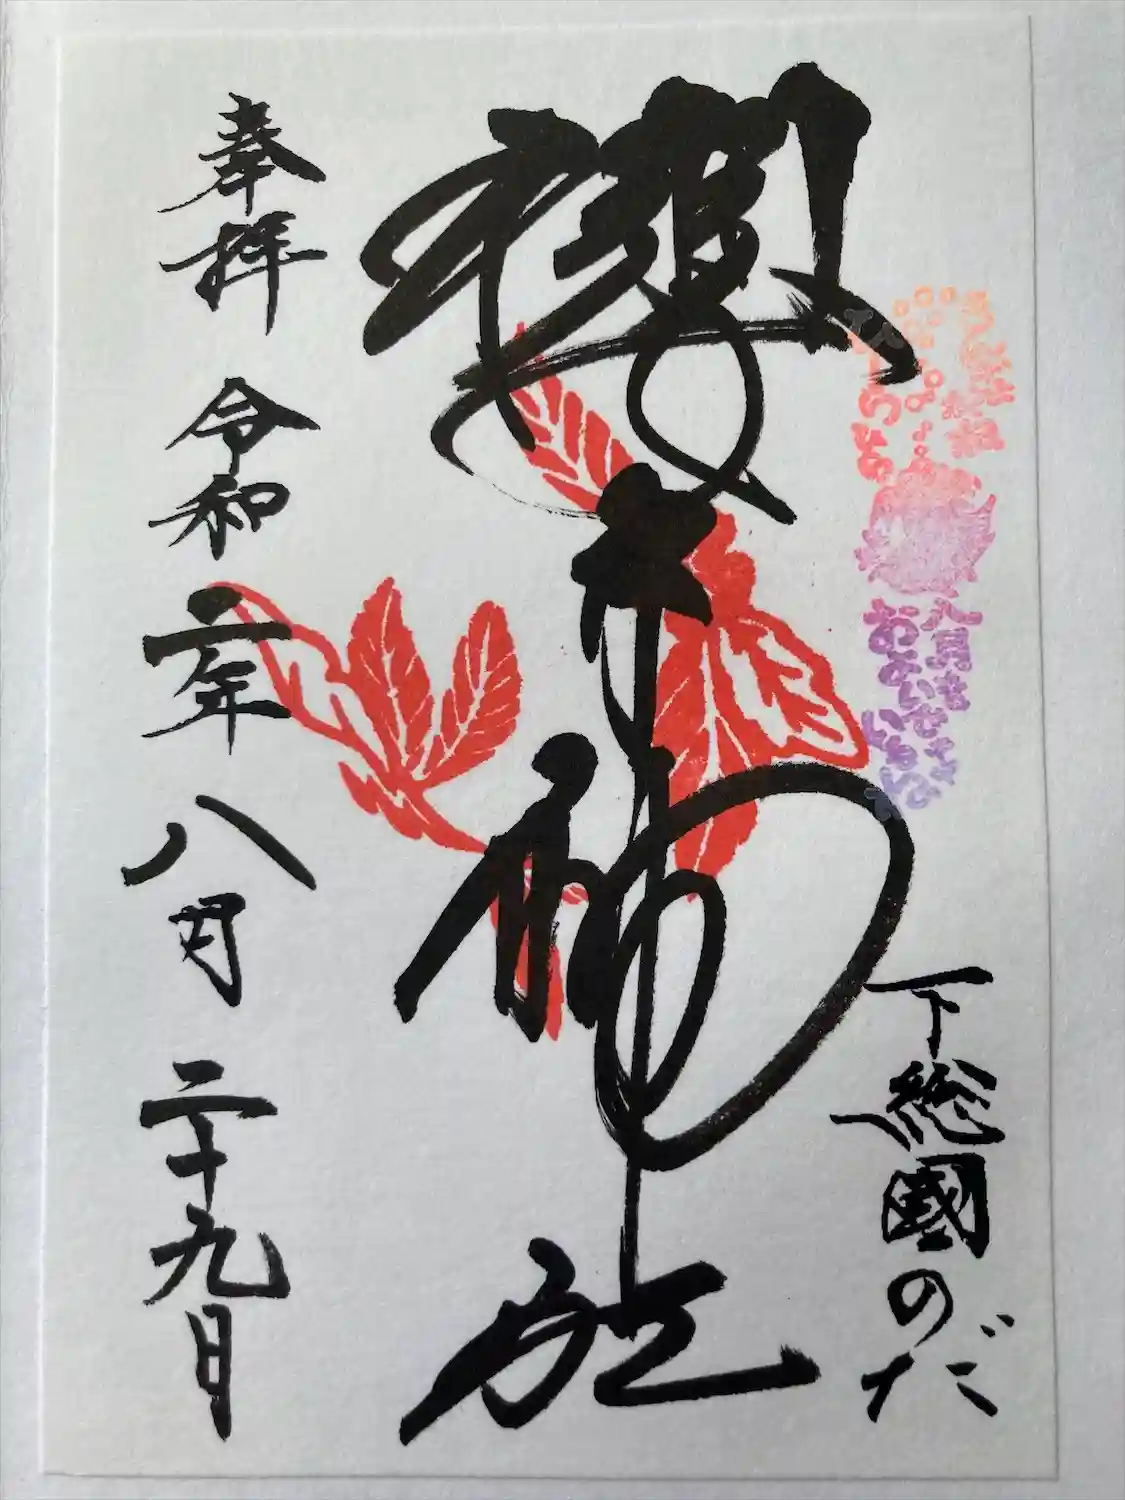 下総國のだ
櫻木神社
奉拝 令和二年 八月 二十九日